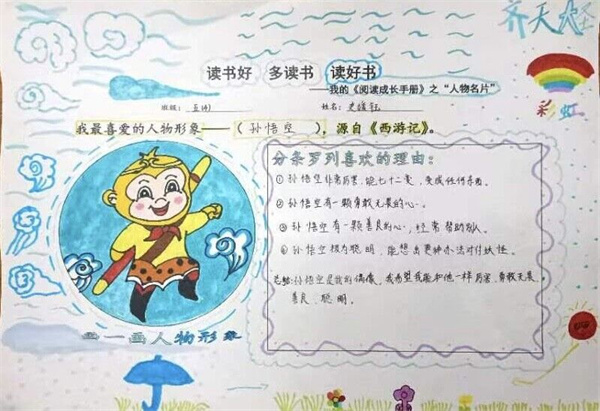 齐天大圣
读书好 多读书 读好书
——我的《阅读成长手册》之“人物名片”
彩虹
班级： 姓名：
我最喜爱的人物形象——（ 孙悟空 ），源自《西游记》。
分条罗列喜欢的理由：
①孙悟空非常厉害，能七十二变，变成任何东西。
②孙悟空有一颗勇敢无畏的心。
③孙悟空有一颗善良的心，经常帮助别人。
④孙悟空极为聪明，能想出更种办法对付妖怪。
总结：孙悟空是我的偶像，我希望我能和他一样厉害、勇敢无畏、
善良、聪明。
画一画人物形象